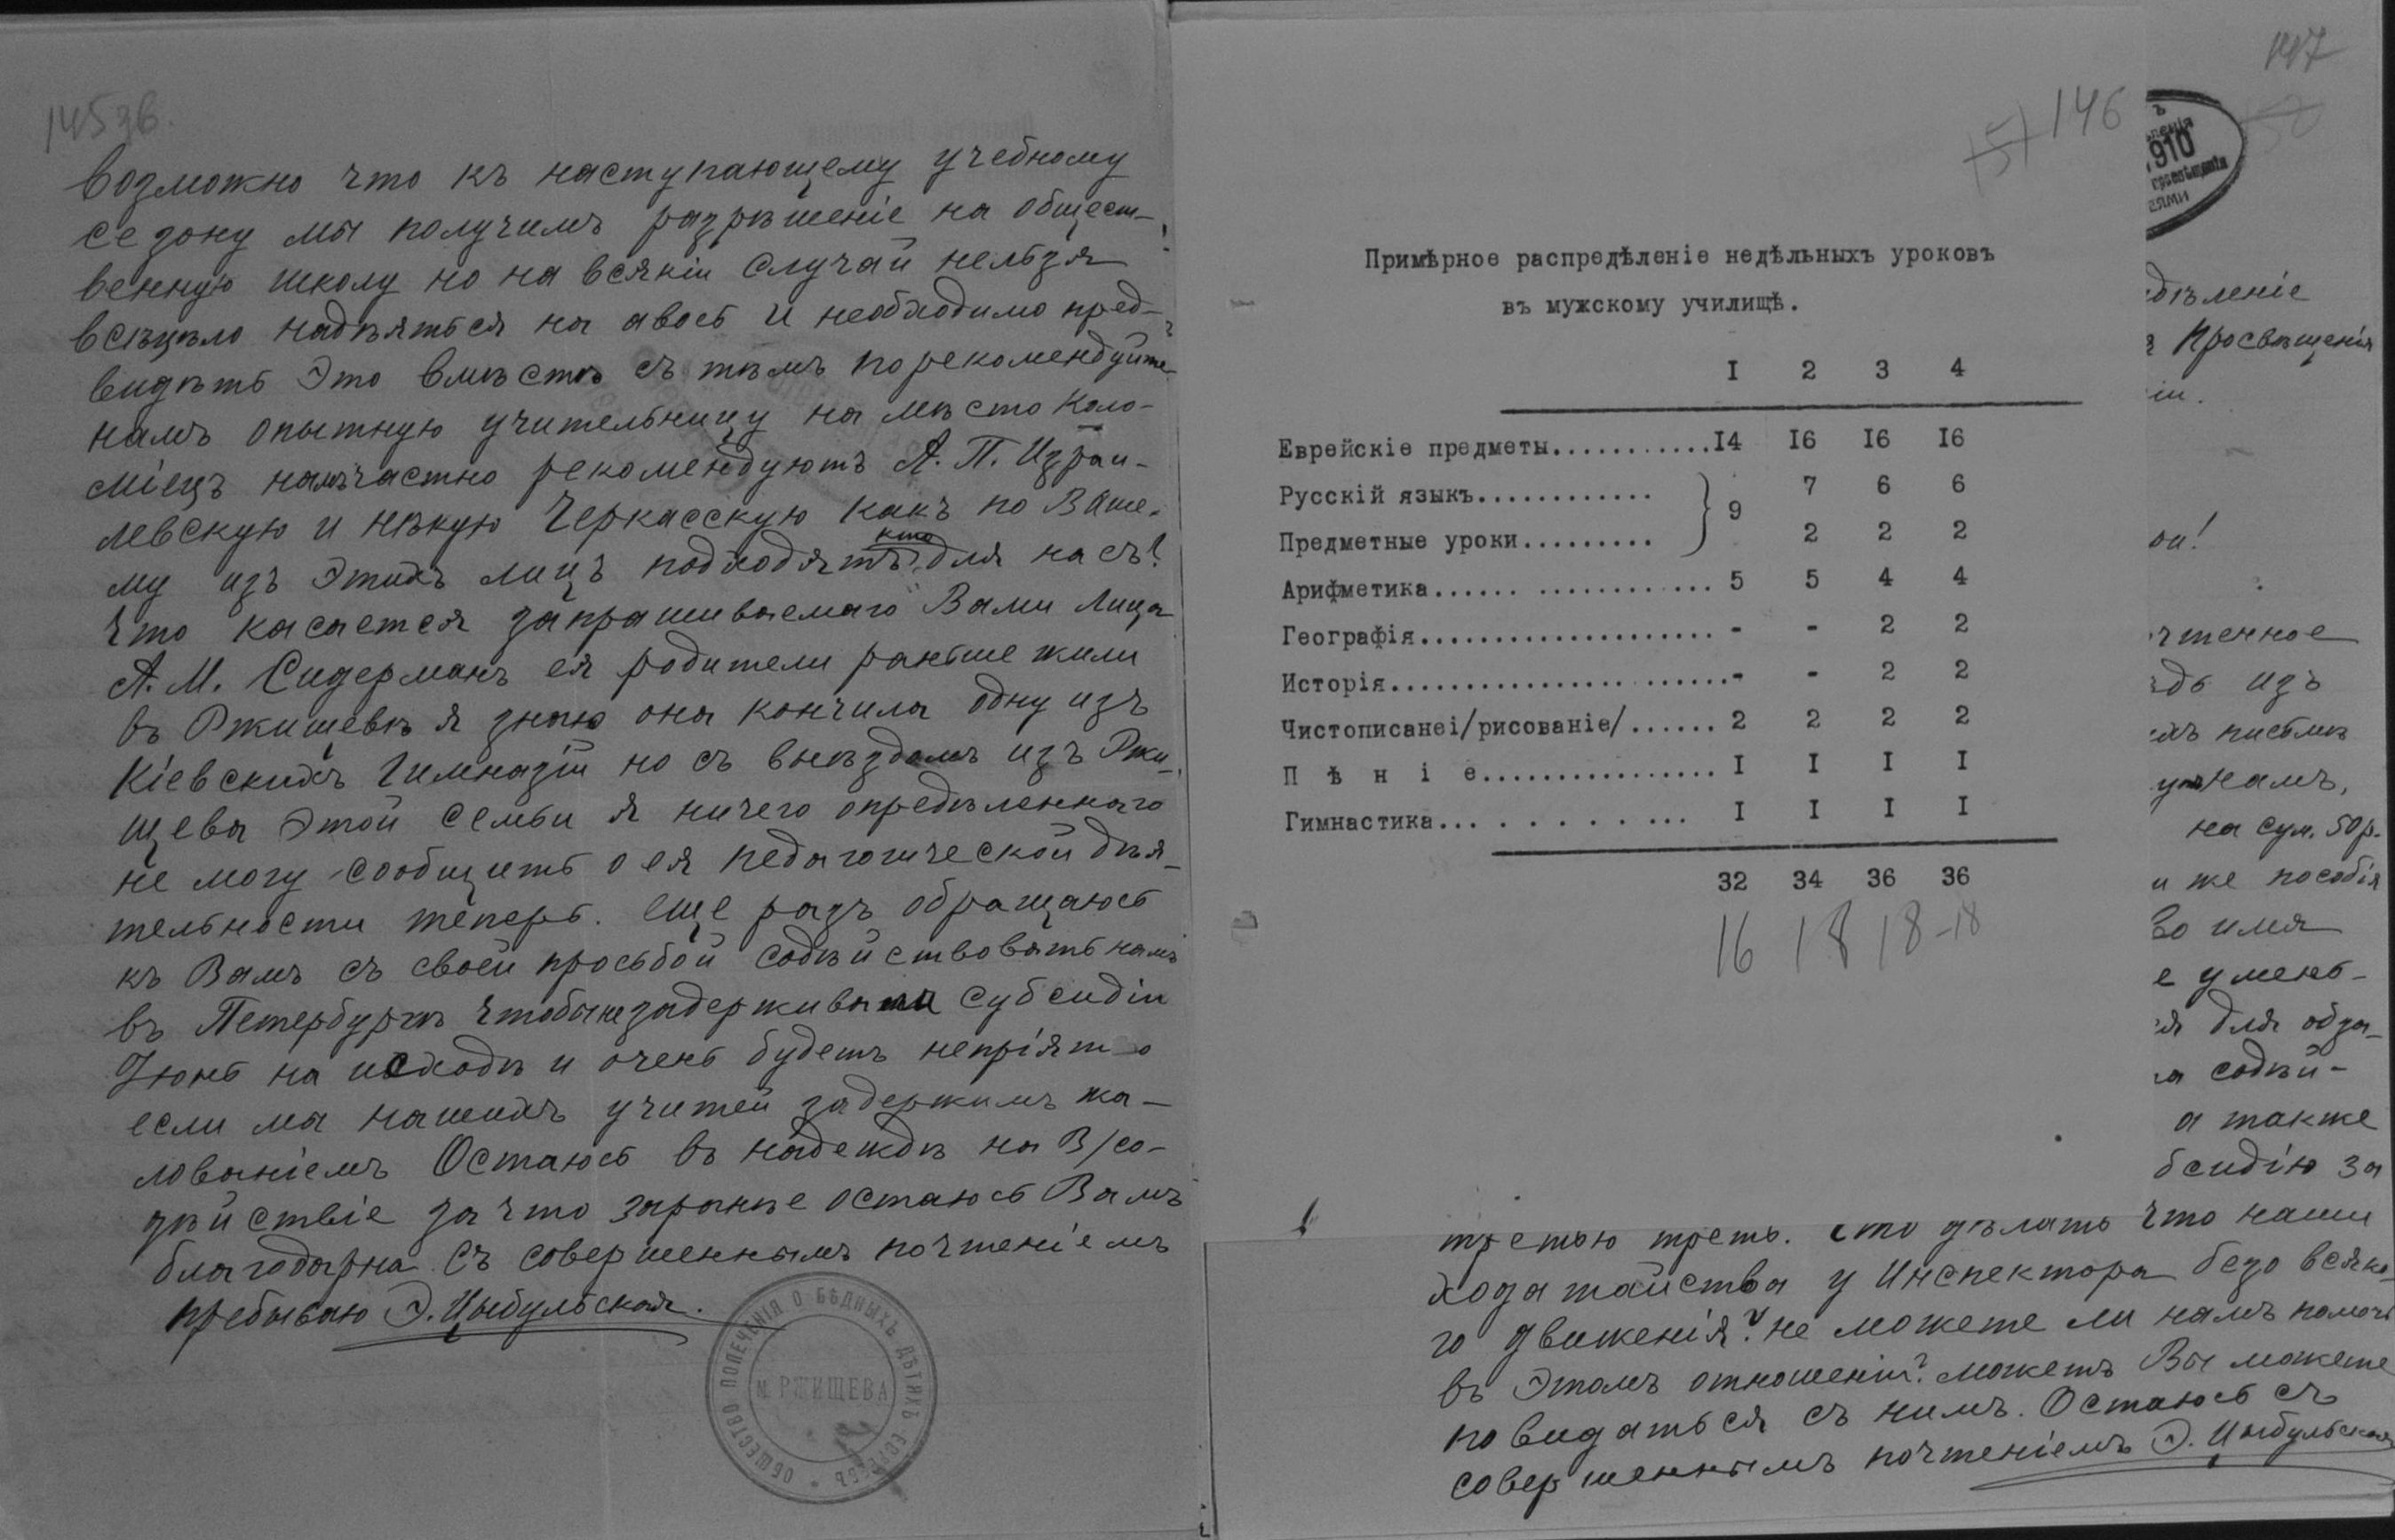 145 зв.
возможно что къ наступающему учебному
сезону мы получимъ разрѣшеніе на общест-
венную школу но на всякіи случай нельзя
всецѣло надѣяться на авось и необходимо пред-
видѣть Это вмѣстѣ съ тѣмъ порекомендуйте
намъ опытную учительницу на мѣсто Коло-
міецъ намъ частно рекомендуютъ А. П. Израи-
левскую и нѣкую Черкасскую какъ по Ваше-
му изъ этихъ лицъ кто подходятъ для насъ?
Что касается запрашиваемаго Вами Лица
А. М. Сидерманъ ея родители раньше жили
въ Ржищевѣ я знаю она кончила одну изъ
Кіевскихъ Гимназій но съ выѣздомъ изъ Ржи-
щева этой семьи я ничего опредѣленнаго
не могу сообщить о ея педагогической дѣя-
тельности теперь. еще разъ обращаюсь
къ Вамъ съ своей просьбой содѣйствовать намъ
въ Петербургѣ чтобы не задерживали субсидіи
Іюнь на исходѣ и очень будетъ непріятно
если мы нашихъ учитей задержимъ жа-
лованіемъ Остаюсь въ надеждѣ на В/со-
дѣйствіе за что заранѣе остаюсь Вамъ
благодарна Съ совершеннымъ почтеніемъ
пребываю Э. Цыбульская.
ОБЩЕСТВО ПОПЕЧЕНІЯ О БѢДНЫХЪ ДѢТЯХЪ ЕВРЕЕВЪ
М. РЖИЩЕВА
151 146
Примѣрное распредѣленіе недѣльныхъ уроковъ
въ мужскому училищѣ.
I 2 3 4
Еврейскіе предметы...........I4 I6 I6 I6
Русскій языкъ............ } 9 7 6 6
Предметные уроки......... 2 2 2
Арифметика...... ............ 5 5 4 4
Географія.................... - - 2 2
Исторія................ .......- - 2 2
Чистописанеі/рисованіе/...... 2 2 2 2
П ѣ н і е................. I I I I
Гимнастика... . . . . . . ... I I I I
32 34 36 36
16 18 18-18
147
910
дѣленіе
Просвѣщенія
іи.
ои!
чтенное
дь изъ
ихъ письмѣ
намъ,
на сум. 50р.
и же пособія
Во имя
е умень-
я для обза-
а содѣй-
а также
бсидію за
третью треть. что дѣлать что наши
ходатайства у Инспектора безо всяко-
го движенія? не можете ли намъ помочь
въ этомъ отношеніи? можетъ Вы можете
повидаться съ нимъ. Остаюсь съ
совершеннымъ почтеніемъ Э. Цыбульская